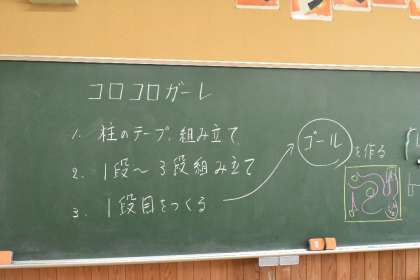 コロコロガーレ
1. 柱のテープ、組み立て
2. 1段〜3段組み立て
3. 1段目をつくる
ゴール を作る